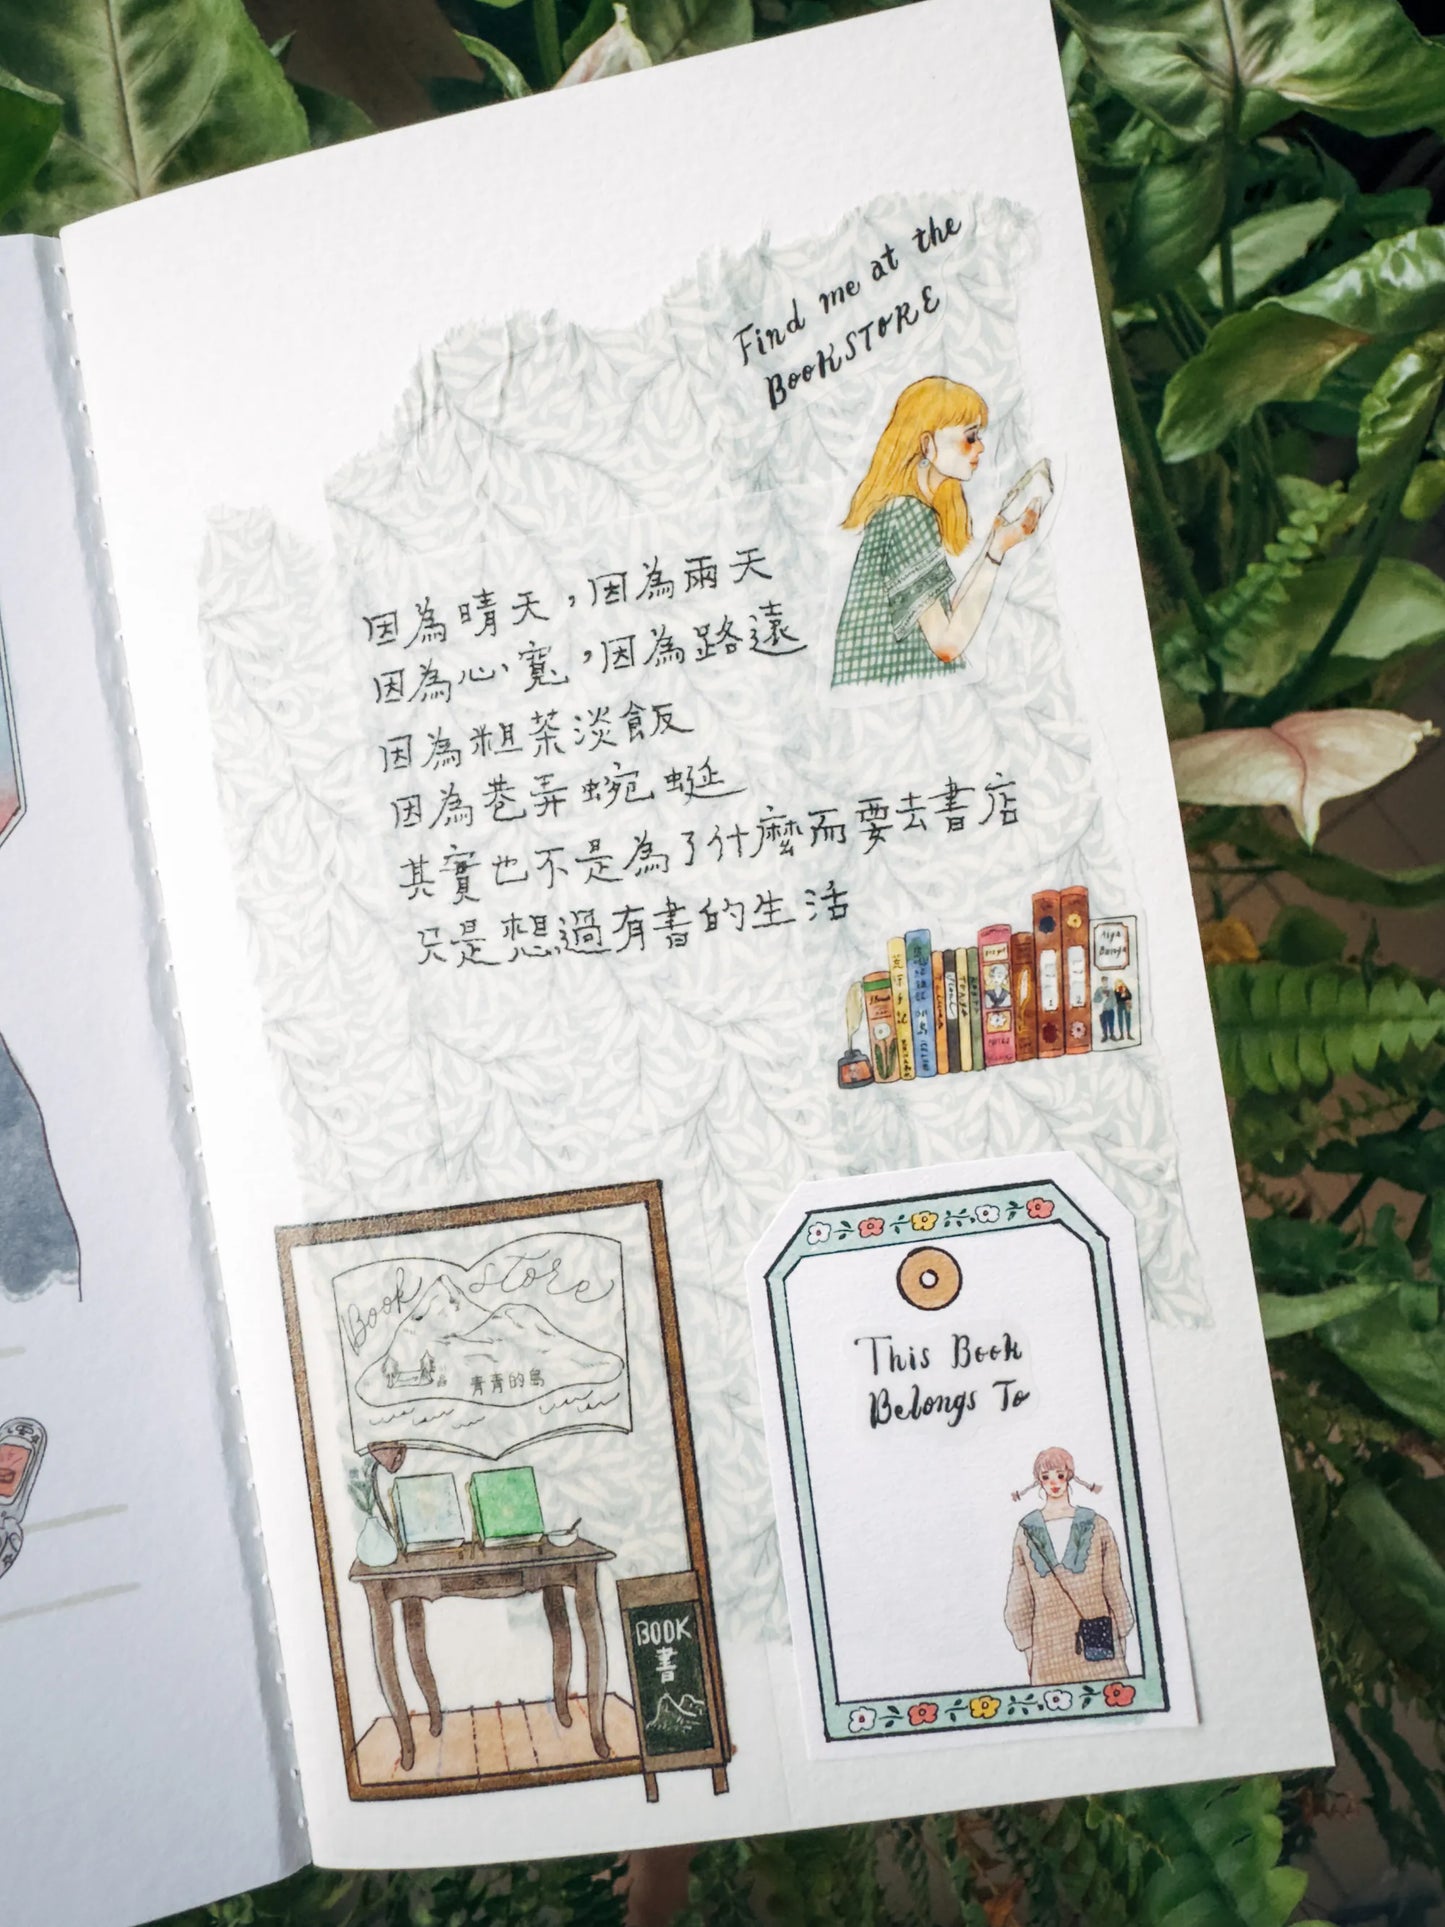 Find me at the
BOOKSTORE
因為晴天，因為雨天
因為心寬，因為路遠
因為粗茶淡飯
因為巷弄蜿蜒
其實也不是為了什麼而要去書店
只是想過有書的生活
Book store
青青的島
BOOK
書
This Book
Belongs To